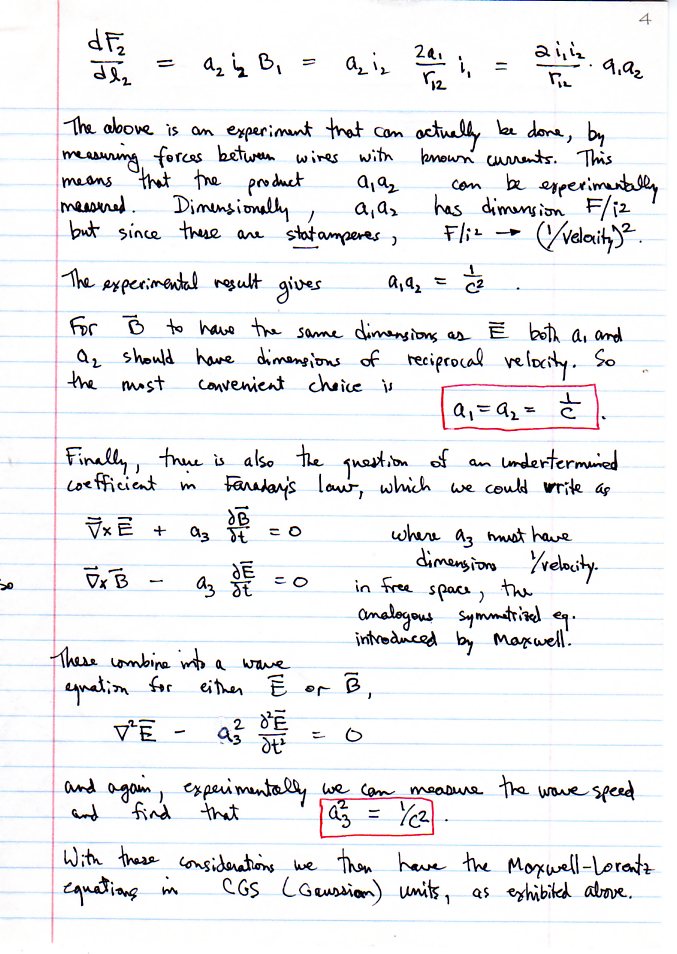 4
dF₂/dl₂ = a₂ i₂ B₁ = a₂ i₂ 2a₁/r₁₂ i₁ = 2i₁i₂/r₁₂ · a₁a₂
The above is an experiment that can actually be done, by
measuring forces between wires with known currents. This
means that the product a₁a₂ can be experimentally
measured. Dimensionally, a₁a₂ has dimension F/i²
but since these are statamperes, F/i² → (1/velocity)².
The experimental result gives a₁a₂ = 1/c² .
For B̄ to have the same dimensions as Ē both a₁ and
a₂ should have dimensions of reciprocal velocity. So
the most convenient choice is
a₁ = a₂ = 1/c .
Finally, there is also the question of an undertermined
coefficient in Faraday's law, which we could write as
∇̄×Ē + a₃ ∂B̄/∂t = 0 where a₃ must have
dimensions 1/velocity.
so ∇̄×B̄ − a₃ ∂Ē/∂t = 0 in free space, the
analogous symmetrized eq.
introduced by Maxwell.
These combine into a wave
equation for either Ē or B̄,
∇²Ē − a₃² ∂²Ē/∂t² = 0
and again, experimentally we can measure the wave speed
and find that a₃² = 1/c² .
With these considerations we then have the Maxwell-Lorentz
equations in CGS (Gaussian) units, as exhibited above.